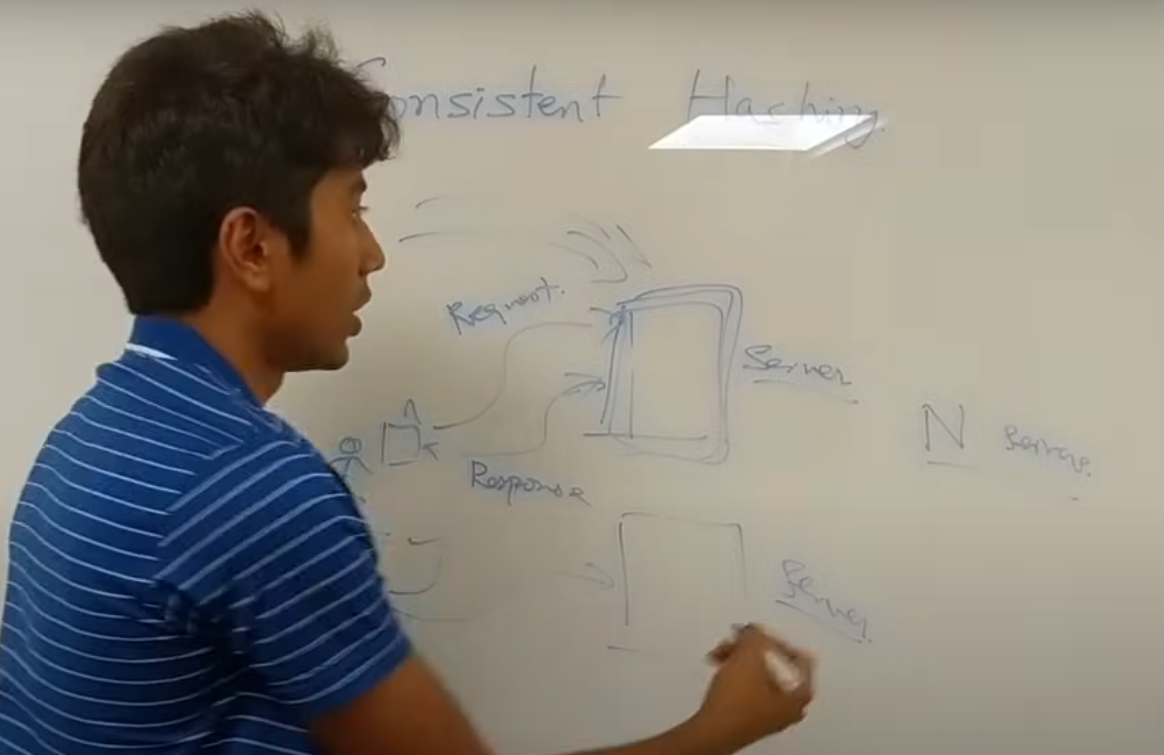 Consistent Hashing
Request.
Server
N Servers.
Response
Server